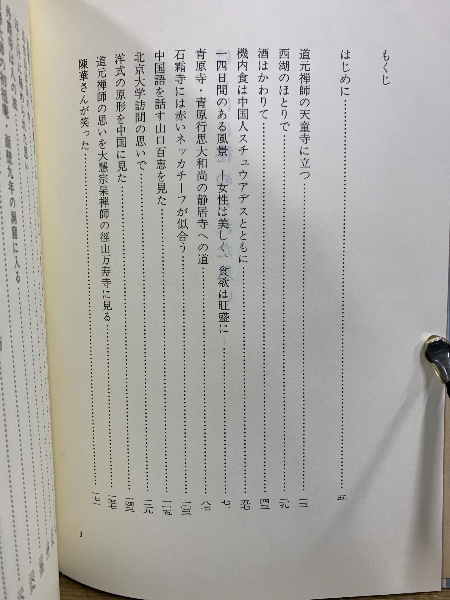 もくじ
はじめに……五
道元禅師の天童寺に立つ……
西湖のほとりで……二九
酒はかわりて……
機内食は中国人スチュウアデスとともに……五七
一四日間のある風景 ―女性は美しく。食欲は旺盛に……
青原寺・青原行思大和尚の静居寺への道……
石霜寺には赤いネッカチーフが似合う……
中国語を話す山口百恵を見た……
北京大学訪問の思いで……一二九
洋式の原形を中国に見た……
道元禅師の思いを大慧宗杲禅師の徑山万寿寺に見る……一五七
陳華さんが笑った……
3
・面壁九年の洞窟に入る